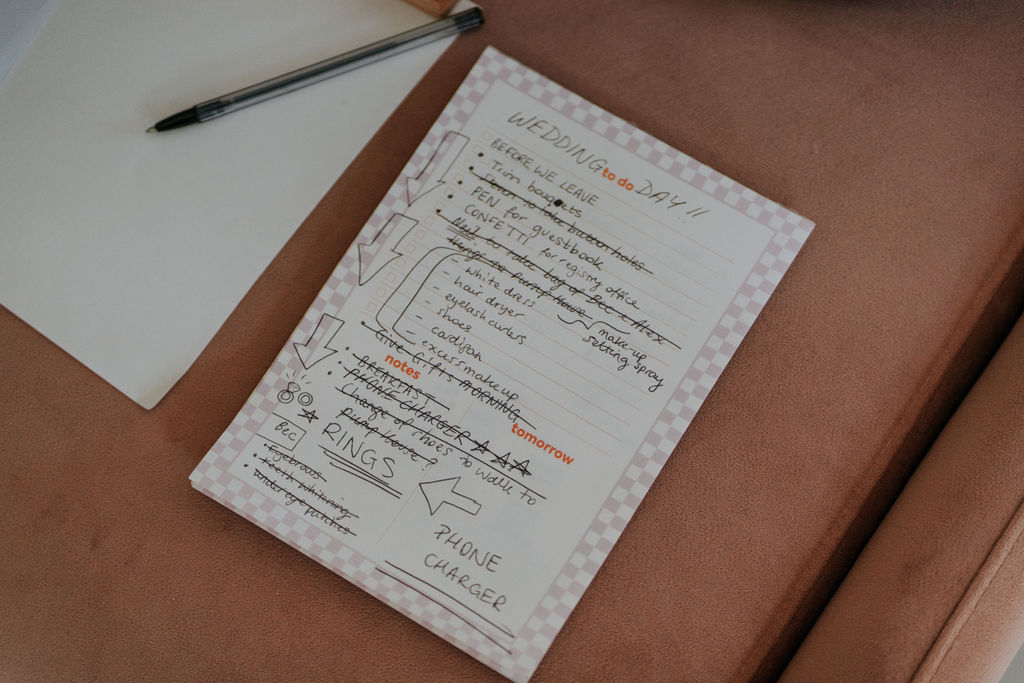 WEDDING DAY!!
to do
BEFORE WE LEAVE
• Trim bouquets
• Steven to take buttonholes
• PEN for guestbook
• CONFETTI for registry office
• Need to take bag of Bec & Alex
things to Pump House
- white dress
- hair dryer
- eyelash curlers
- shoes
- cardigan
- excess make up
make-up
setting spray
• Give Gifts MORNING
notes
tomorrow
• BREAKFAST
• PHONE CHARGER
Change of shoes to walk to
pump house?
RINGS
BEC
• Eyebrows
• teeth whitening
• under eye patches
PHONE
CHARGER